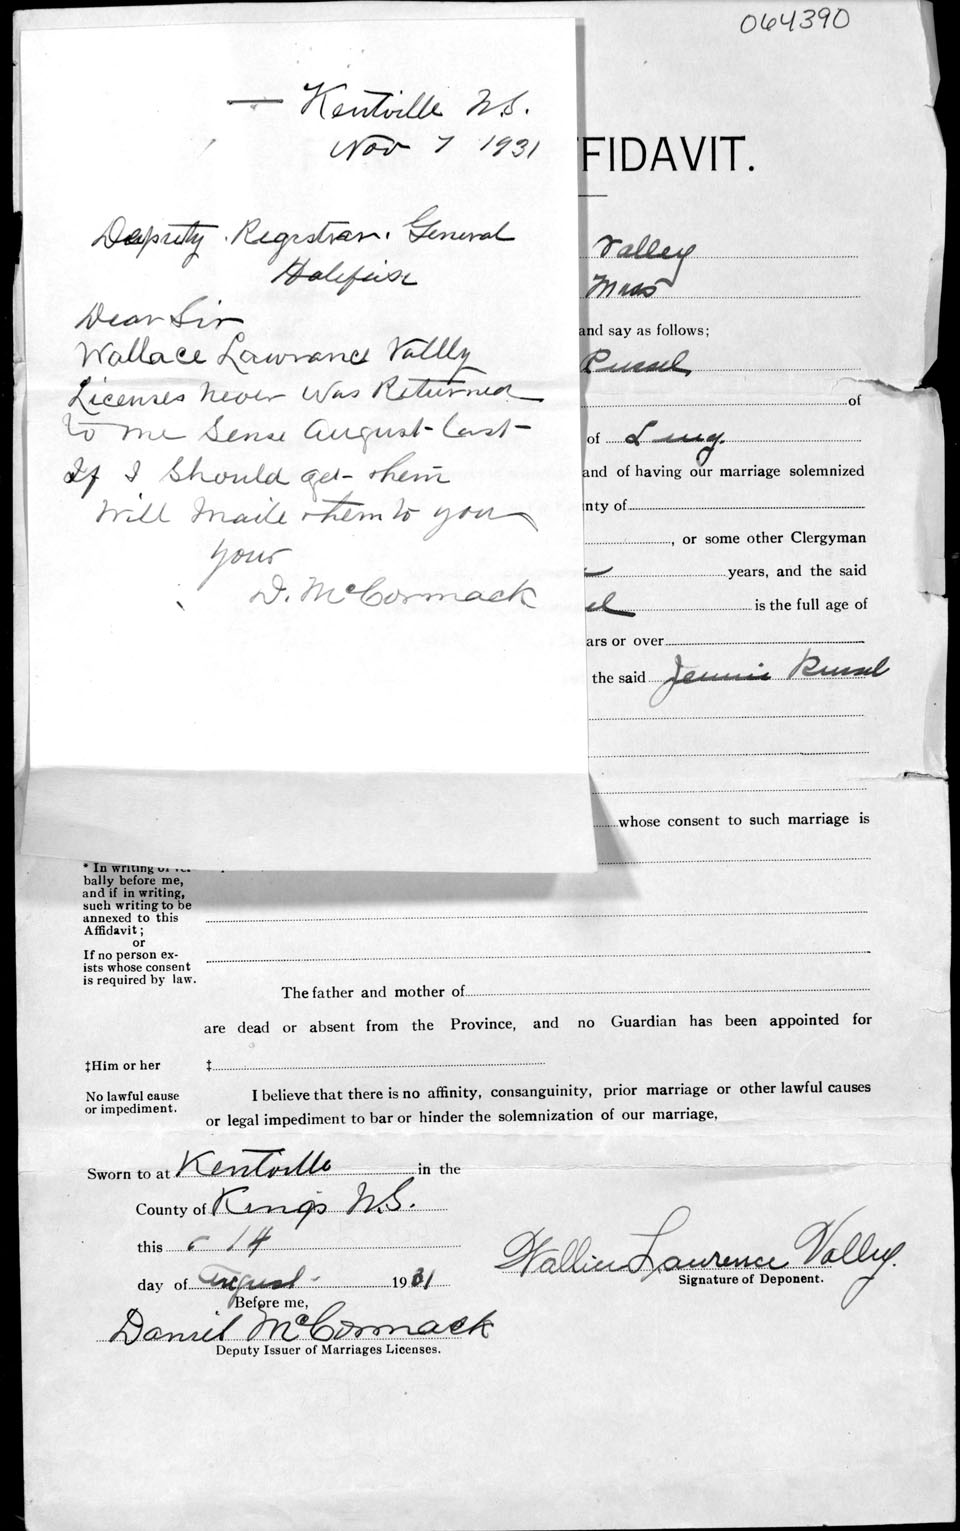 064390
Kentville N.S.
Nov 7 1931
Deputy Registrar General
Halifax
Dear Sir
Wallace Lawrance Vallly
Licenses never was Returned
to me Sense August Last
If I Should get them
Will Maile them to you
your
D. McCormack
FFIDAVIT.
Valley
Mass
and say as follows;
Russel
of
of Lucy
and of having our marriage solemnized
nty of
, or some other Clergyman
years, and the said
el is the full age of
ars or over
the said Jennie Russel
whose consent to such marriage is
* In writing or ver-
bally before me,
and if in writing,
such writing to be
annexed to this
Affidavit;
or
If no person ex-
ists whose consent
is required by law.
The father and mother of
are dead or absent from the Province, and no Guardian has been appointed for
‡Him or her ‡
No lawful cause
or impediment.
I believe that there is no affinity, consanguinity, prior marriage or other lawful causes
or legal impediment to bar or hinder the solemnization of our marriage,
Sworn to at Kentville in the
County of Kings N.S.
this 14
day of August 1931
Before me,
Daniel McCormack
Deputy Issuer of Marriages Licenses.
Wallice Lawrence Valley.
Signature of Deponent.